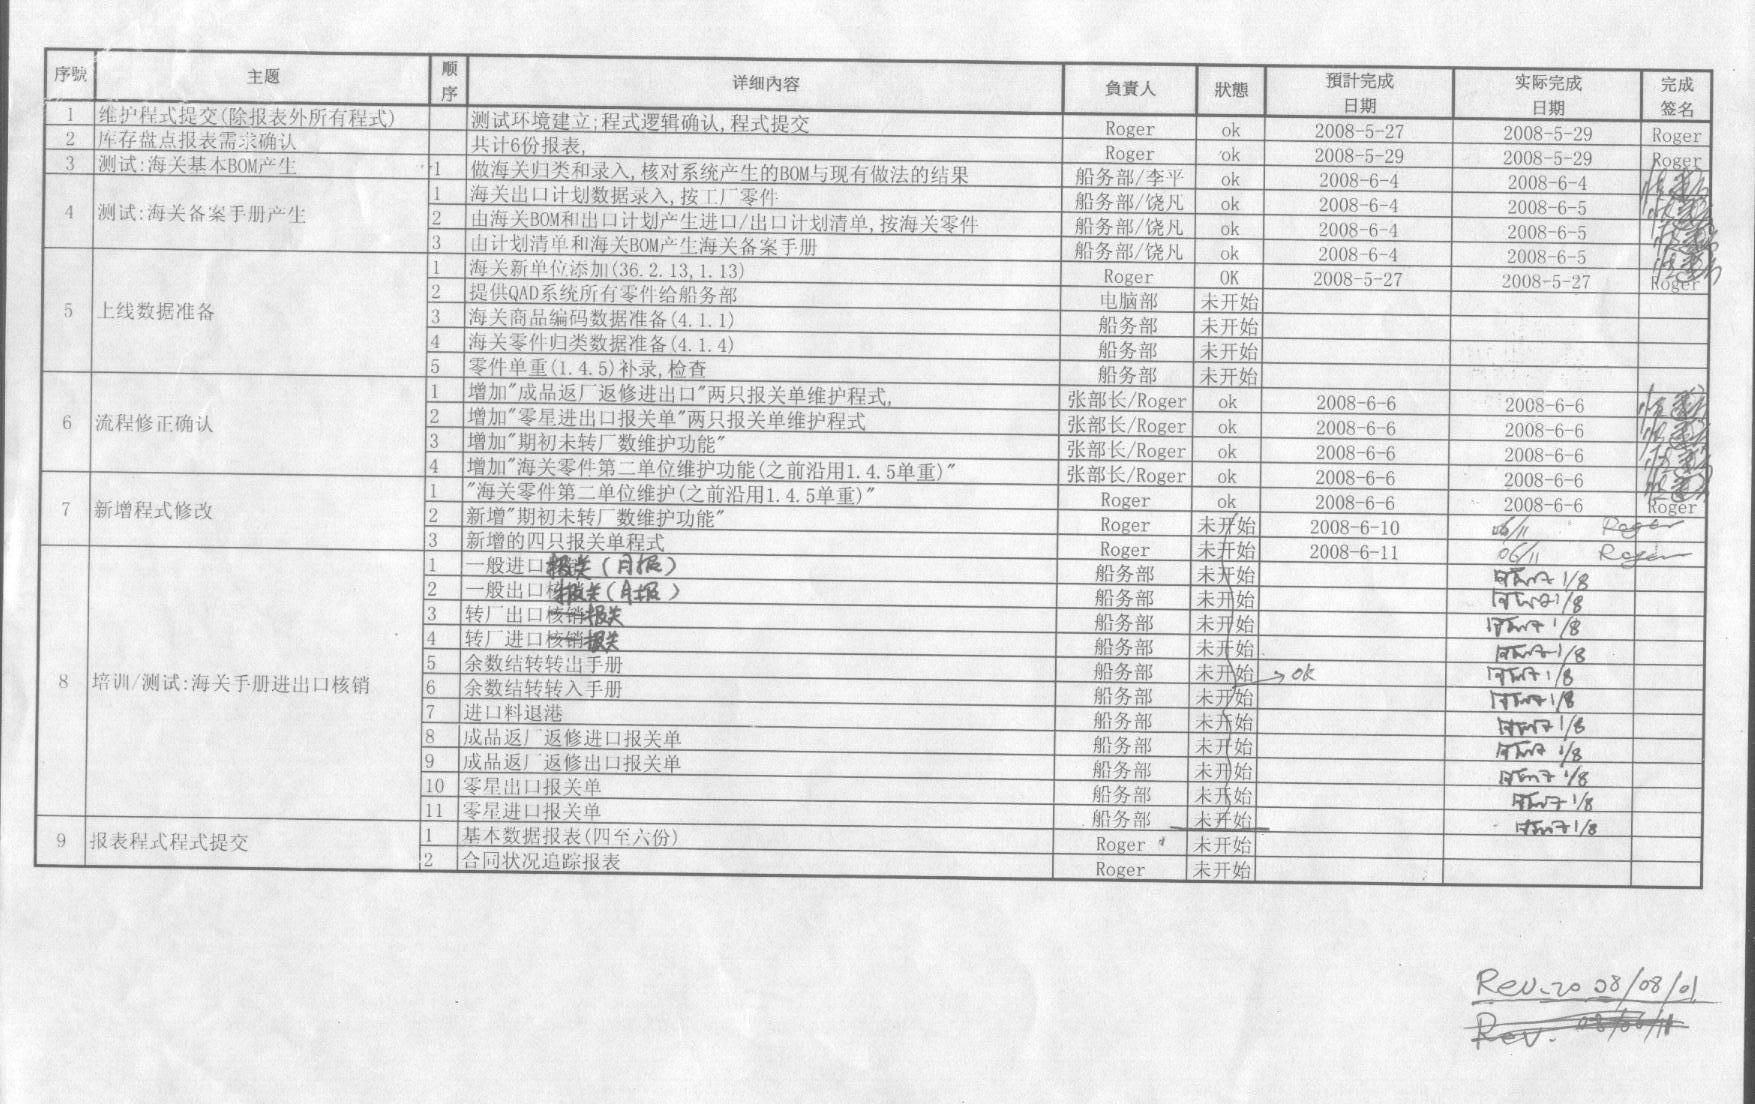 序號 主题 顺序 详细內容 負責人 狀態 預計完成日期 实际完成日期 完成签名
1 维护程式提交(除报表外所有程式) 测试环境建立;程式逻辑确认,程式提交 Roger ok 2008-5-27 2008-5-29 Roger
2 库存盘点报表需求确认 共计6份报表, Roger ok 2008-5-29 2008-5-29 Roger
3 测试:海关基本BOM产生 1 做海关归类和录入,核对系统产生的BOM与现有做法的结果 船务部/李平 ok 2008-6-4 2008-6-4
4 测试:海关备案手册产生 1 海关出口计划数据录入,按工厂零件 船务部/饶凡 ok 2008-6-4 2008-6-5
2 由海关BOM和出口计划产生进口/出口计划清单,按海关零件 船务部/饶凡 ok 2008-6-4 2008-6-5
3 由计划清单和海关BOM产生海关备案手册 船务部/饶凡 ok 2008-6-4 2008-6-5
5 上线数据准备 1 海关新单位添加(36.2.13,1.13) Roger OK 2008-5-27 2008-5-27 Roger
2 提供QAD系统所有零件给船务部 电脑部 未开始
3 海关商品编码数据准备(4.1.1) 船务部 未开始
4 海关零件归类数据准备(4.1.4) 船务部 未开始
5 零件单重(1.4.5)补录,检查 船务部 未开始
6 流程修正确认 1 增加"成品返厂返修进出口"两只报关单维护程式, 张部长/Roger ok 2008-6-6 2008-6-6
2 增加"零星进出口报关单"两只报关单维护程式 张部长/Roger ok 2008-6-6 2008-6-6
3 增加"期初未转厂数维护功能" 张部长/Roger ok 2008-6-6 2008-6-6
4 增加"海关零件第二单位维护功能(之前沿用1.4.5单重)" 张部长/Roger ok 2008-6-6 2008-6-6
7 新增程式修改 1 "海关零件第二单位维护(之前沿用1.4.5单重)" Roger ok 2008-6-6 2008-6-6 Roger
2 新增"期初未转厂数维护功能" Roger 未开始 2008-6-10 06/11 Roger
3 新增的四只报关单程式 Roger 未开始 2008-6-11 06/11 Roger
8 培训/测试:海关手册进出口核销 1 一般进口报关(月报) 船务部 未开始 1/8
2 一般出口报关(月报) 船务部 未开始 1/8
3 转厂出口核销报关 船务部 未开始 1/8
4 转厂进口核销报关 船务部 未开始 1/8
5 余数结转转出手册 船务部 未开始 → ok 1/8
6 余数结转转入手册 船务部 未开始 1/8
7 进口料退港 船务部 未开始 1/8
8 成品返厂返修进口报关单 船务部 未开始 1/8
9 成品返厂返修出口报关单 船务部 未开始 1/8
10 零星出口报关单 船务部 未开始 1/8
11 零星进口报关单 船务部 未开始 1/8
9 报表程式程式提交 1 基本数据报表(四至六份) Roger 未开始
2 合同状况追踪报表 Roger 未开始
Rev.20 08/08/01
Rev.